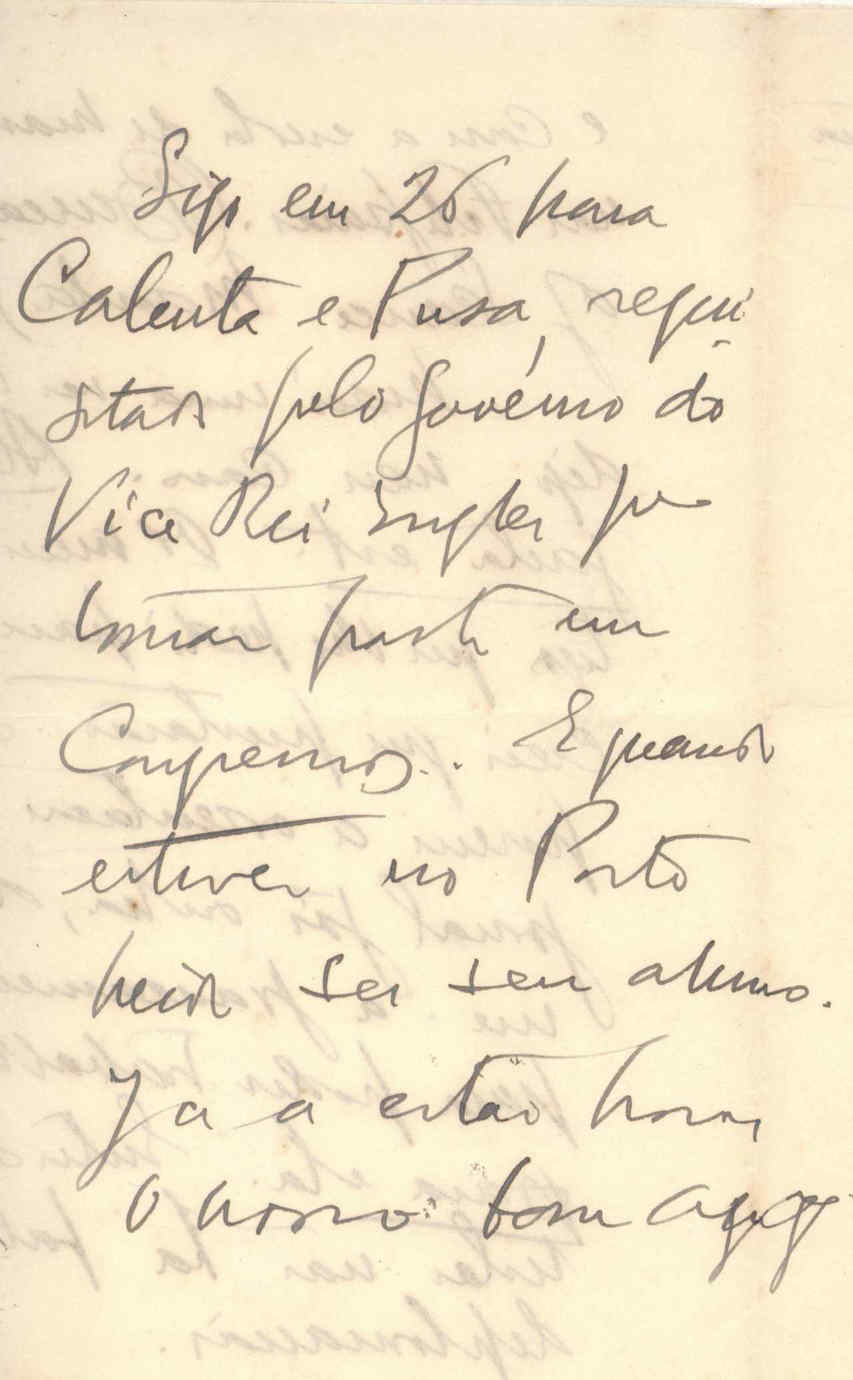 Sigo em 26 para
Calcuta e Pusa, requi-
sitado pelo Govêrno do
Vice Rei Inglez pa
tomar parte em
Congressos. E quando
estiver no Porto
heide ser seu alumno.
Ja a estas horas
o nosso bom